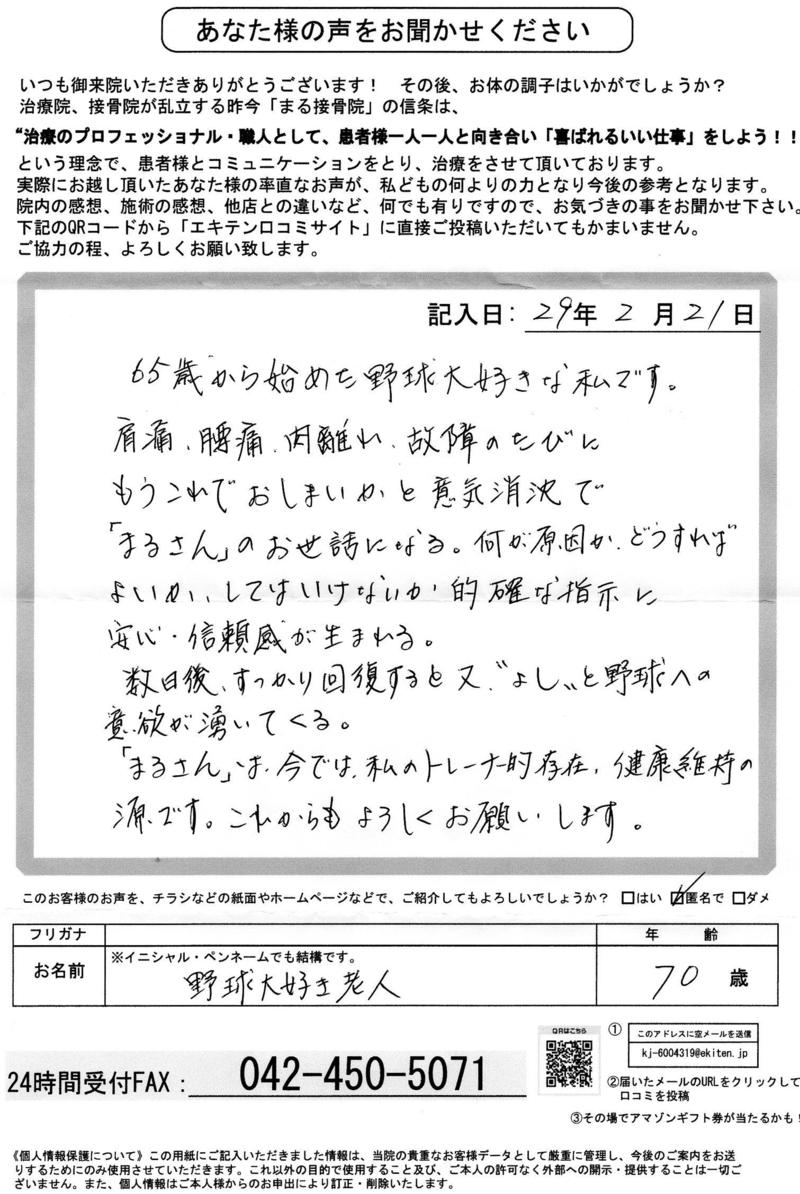 あなた様の声をお聞かせください
いつも御来院いただきありがとうございます！　その後、お体の調子はいかがでしょうか？
治療院、接骨院が乱立する昨今「まる接骨院」の信条は、
“治療のプロフェッショナル・職人として、患者様一人一人と向き合い「喜ばれるいい仕事」をしよう！！
という理念で、患者様とコミュニケーションをとり、治療をさせて頂いております。
実際にお越し頂いたあなた様の率直なお声が、私どもの何よりの力となり今後の参考となります。
院内の感想、施術の感想、他店との違いなど、何でも有りですので、お気づきの事をお聞かせ下さい。
下記のQRコードから「エキテン口コミサイト」に直接ご投稿いただいてもかまいません。
ご協力の程、よろしくお願い致します。
記入日：29年2月21日
65歳から始めた野球大好きな私です。
肩痛、腰痛、肉離れ、故障のたびに
もうこれでおしまいかと意気消沈で
「まるさん」のお世話になる。何が原因か、どうすれば
よいか、してはいけないか的確な指示に
安心・信頼感が生まれる。
数日後、すっかり回復すると又、“よし„と野球への
意欲が湧いてくる。
「まるさん」は、今では、私のトレーナー的存在、健康維持の
源です。これからもよろしくお願いします。
このお客様のお声を、チラシなどの紙面やホームページなどで、ご紹介してもよろしいでしょうか？ □はい ☑匿名で □ダメ
フリガナ
年　齢
お名前
※イニシャル・ペンネームでも結構です。
野球大好き老人
70歳
24時間受付FAX：042-450-5071
QRはこちら
①このアドレスに空メールを送信
kj-6004319@ekiten.jp
②届いたメールのURLをクリックして
口コミを投稿
③その場でアマゾンギフト券が当たるかも！
《個人情報保護について》この用紙にご記入いただきました情報は、当院の貴重なお客様データとして厳重に管理し、今後のご案内をお送
りするためにのみ使用させていただきます。これ以外の目的で使用すること及び、ご本人の許可なく外部への開示・提供することは一切ご
ざいません。また、個人情報はご本人様からのお申出により訂正・削除いたします。